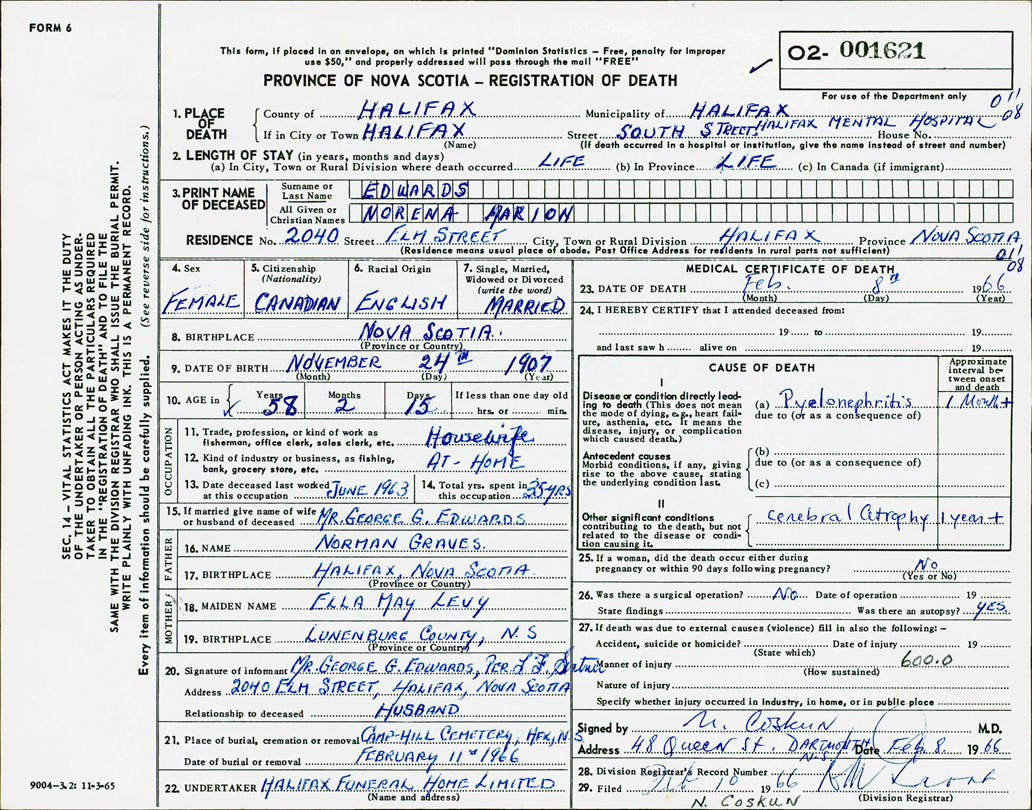 FORM 6
This form, if placed in an envelope, on which is printed "Dominion Statistics – Free, penalty for improper
use $50," and properly addressed will pass through the mail "FREE"
PROVINCE OF NOVA SCOTIA – REGISTRATION OF DEATH
O2- 001621
For use of the Department only
011
08
1. PLACE OF DEATH County of HALIFAX Municipality of HALIFAX
If in City or Town HALIFAX Street SOUTH STREET, HALIFAX MENTAL HOSPITAL House No.
(Name) (If death occurred in a hospital or institution, give the name instead of street and number)
2. LENGTH OF STAY (in years, months and days)
(a) In City, Town or Rural Division where death occurred LIFE (b) In Province LIFE (c) In Canada (if immigrant)
3. PRINT NAME OF DECEASED Surname or Last Name EDWARDS
All Given or Christian Names NORENA MARION
RESIDENCE No. 2040 Street ELM STREET City, Town or Rural Division HALIFAX Province NOVA SCOTIA
(Residence means usual place of abode. Post Office Address for residents in rural parts not sufficient)
011
08
4. Sex FEMALE
5. Citizenship (Nationality) CANADIAN
6. Racial Origin ENGLISH
7. Single, Married, Widowed or Divorced (write the word) MARRIED
8. BIRTHPLACE NOVA SCOTIA.
(Province or Country)
9. DATE OF BIRTH NOVEMBER 24TH 1907
(Month) (Day) (Year)
10. AGE in Years 58 Months 2 Days 15 If less than one day old
hrs. or min.
OCCUPATION
11. Trade, profession or kind of work as
fisherman, office clerk, sales clerk, etc. Housewife
12. Kind of industry or business, as fishing,
bank, grocery store, etc. AT-HOME
13. Date deceased last worked at this occupation JUNE 1963 14. Total yrs. spent in this occupation 35 YRS
15. If married give name of wife
or husband of deceased MR. GEORGE G. EDWARDS
FATHER
16. NAME NORMAN GRAVES.
17. BIRTHPLACE HALIFAX, NOVA SCOTIA
(Province or Country)
MOTHER
18. MAIDEN NAME ELLA MAY LEVY
19. BIRTHPLACE LUNENBURG COUNTY, N.S
(Province or Country)
20. Signature of informant MR. GEORGE G. EDWARDS, PER
Address 2040 ELM STREET, HALIFAX, NOVA SCOTIA
Relationship to deceased HUSBAND
21. Place of burial, cremation or removal CAMP-HILL CEMETERY, HFX, N.S
Date of burial or removal FEBRUARY 11th 1966
22. UNDERTAKER HALIFAX FUNERAL HOME LIMITED
(Name and address)
MEDICAL CERTIFICATE OF DEATH
23. DATE OF DEATH Feb. 8th 1966
(Month) (Day) (Year)
24. I HEREBY CERTIFY that I attended deceased from:
19 to 19
and last saw h alive on 19
CAUSE OF DEATH
Approximate interval between onset and death
I
Disease or condition directly leading to death (This does not mean
the mode of dying, e.g., heart failure, asthenia, etc. It means the
disease, injury, or complication which caused death.)
(a) Pyelonephritis 1 Month +
due to (or as a consequence of)
Antecedent causes
Morbid conditions, if any, giving rise to the above cause, stating
the underlying condition last.
(b)
due to (or as a consequence of)
(c)
II
Other significant conditions
contributing to the death, but not related to the disease or condition causing it.
Cerebral Atrophy 1 year +
25. If a woman, did the death occur either during
pregnancy or within 90 days following pregnancy? No
(Yes or No)
26. Was there a surgical operation? No Date of operation 19
State findings Was there an autopsy? yes.
27. If death was due to external causes (violence) fill in also the following: –
Accident, suicide or homicide? Date of injury 19
(State which)
Manner of injury 600.0
(How sustained)
Nature of injury
Specify whether injury occurred in Industry, in home, or in public place
Signed by N. COSKUN M.D.
Address 48 Queen St. DARTMOUTH N.S. Date Feb. 8. 1966
28. Division Registrar's Record Number
29. Filed 10 1966
(Division Registrar)
N. COSKUN
SEC. 14 – VITAL STATISTICS ACT MAKES IT THE DUTY
OF THE UNDERTAKER OR PERSON ACTING AS UNDER-
TAKER TO OBTAIN ALL THE PARTICULARS REQUIRED
IN THE "REGISTRATION OF DEATH" AND TO FILE THE
SAME WITH THE DIVISION REGISTRAR WHO SHALL ISSUE THE BURIAL PERMIT.
WRITE PLAINLY WITH UNFADING INK. THIS IS A PERMANENT RECORD.
Every item of information should be carefully supplied. (See reverse side for instructions.)
9004-3.2: 11-3-65